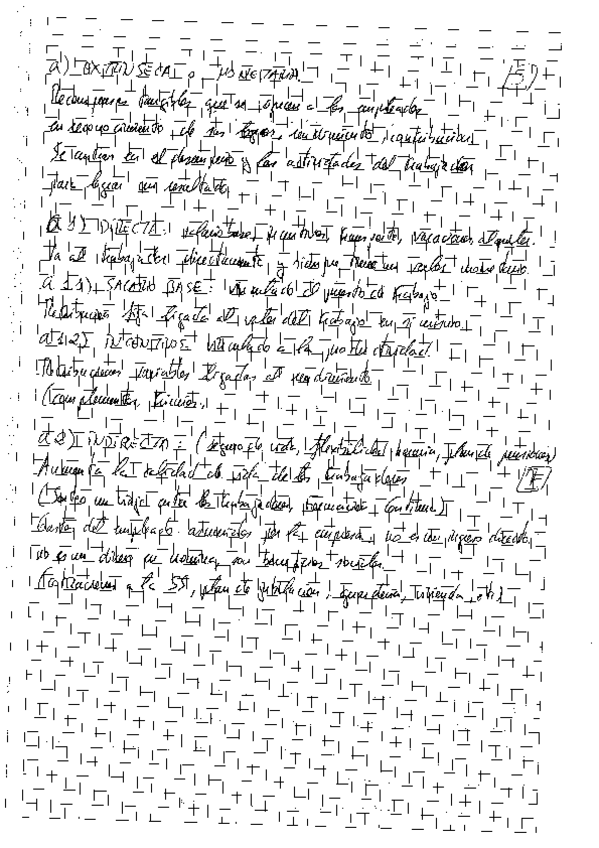 a) EXTRINSECA o MONETARIA. 15)
Recompensas tangibles que se ofrecen a los empleados
en reconocimiento de sus logros, rendimiento, contribucion
Se centra en el desempeño y las actividades del trabajador
para lograr un resultado
a 1) DIRECTA: salario base, incentivos, transporte, vacaciones, alquiler.
Va al trabajador directamente y siempre tiene un valor monetario.
a 1.1) SALARIO BASE: vinculado al puesto de trabajo
Retribucion fija ligada al valor del trabajo en si mismo.
a 1.2) INCENTIVOS: vinculado a la productividad.
Retribuciones variables ligadas al rendimiento
(complementos, primas.)
a 2) INDIRECTA: (seguro de vida, flexibilidad horaria, plan de pensiones)
Aumenta la calidad de vida de los trabajadores
(Sorteo un viaje entre los trabajadores, formacion continua)
Gastos del empleado asumidos por la empresa, no es un ingreso directo,
no es un dinero en nomina, son beneficios sociales.
(cotizaciones a la SS, plan de jubilacion, guarderia, vivienda, etc)